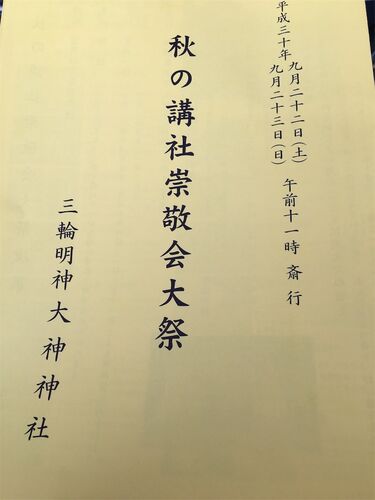 平成三十年九月二十二日(土)
九月二十三日(日)
午前十一時 斎行
秋の講社崇敬会大祭
三輪明神大神神社